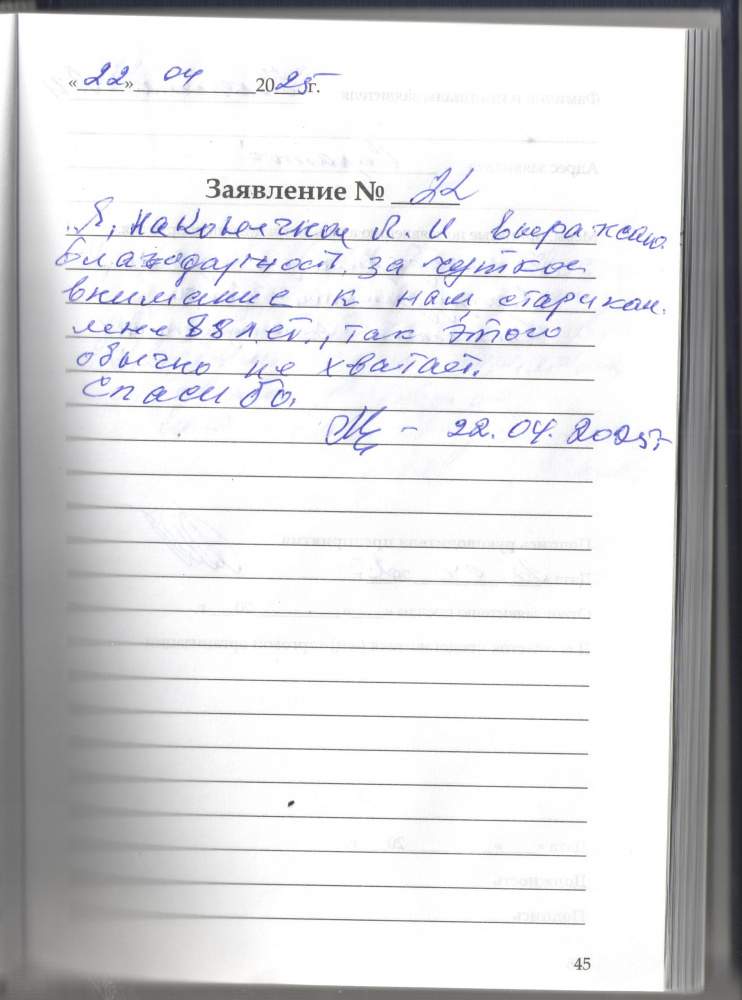 «22» 04 2025 г.
Заявление № 22
Я, Л. И выражаю
благодарность за чуткое
внимание к нам старикам.
мене 88 лет., так этого
обычно не хватает.
Спасибо.
– 22.04.2025г
45